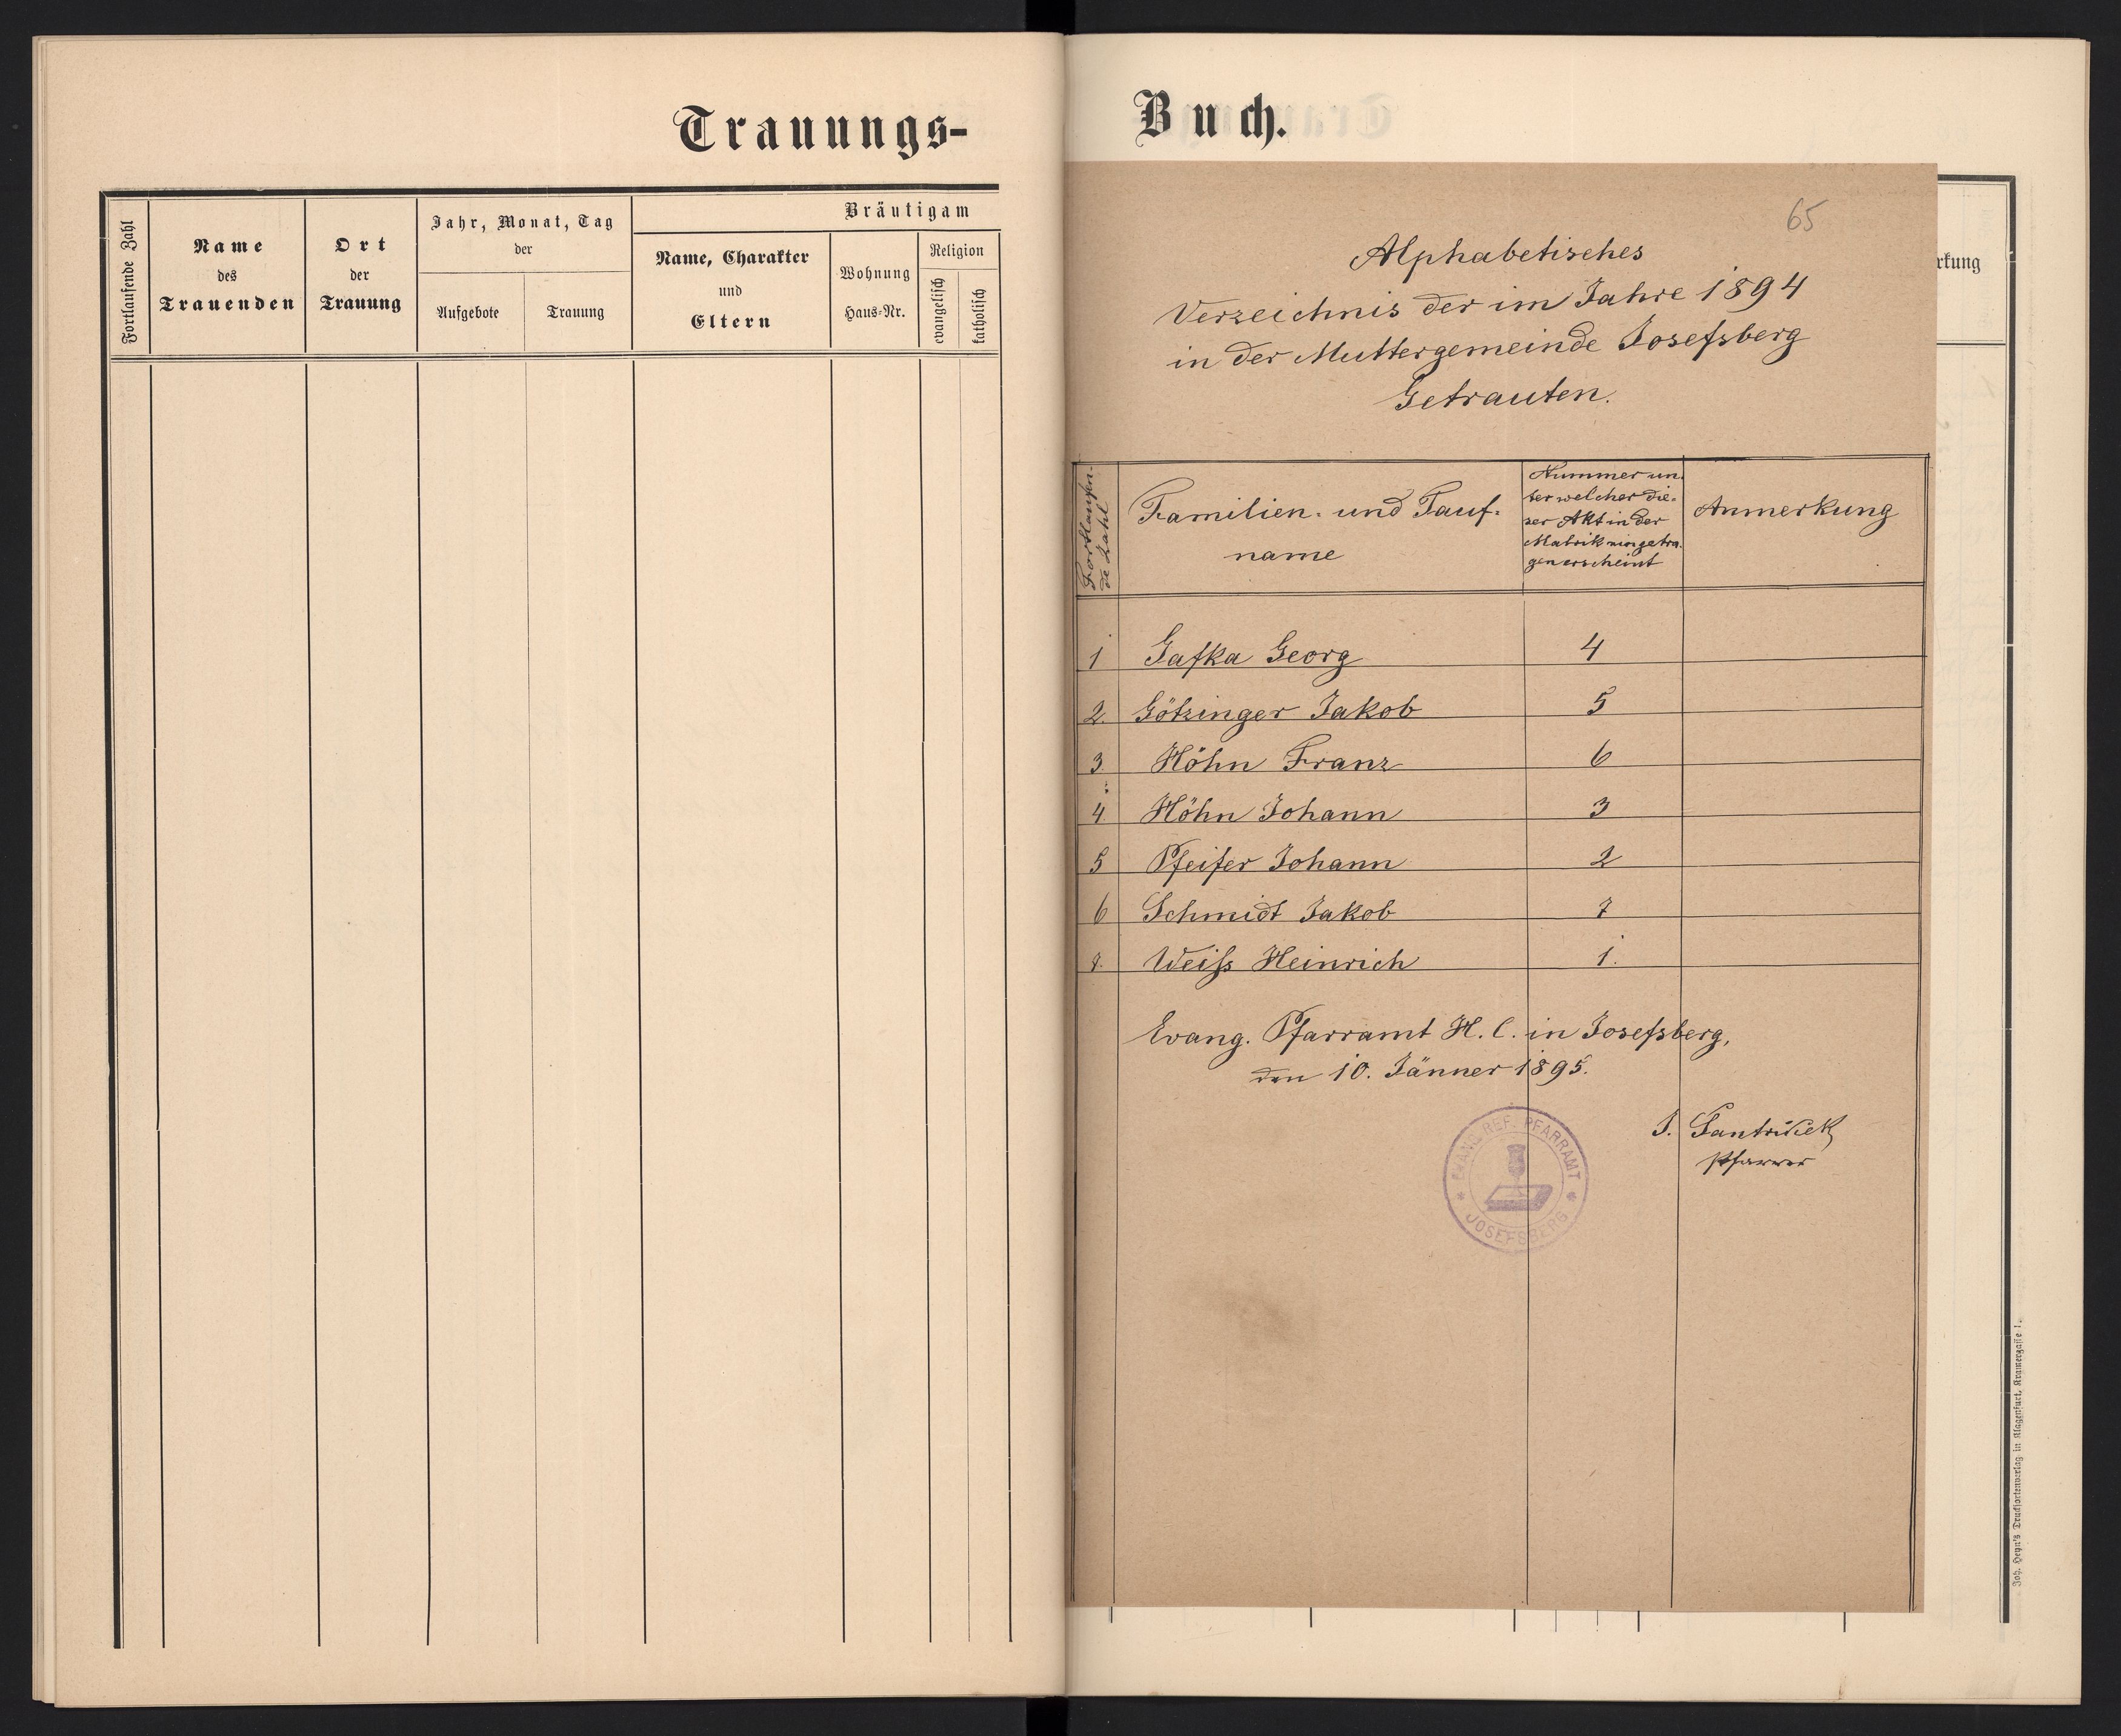 Trauungs-
Fortlaufende Zahl
Name
des
Trauenden
Ort
der
Trauung
Jahr, Monat, Tag
der
Aufgebote
Trauung
Bräutigam
Name, Charakter
und
Eltern
Wohnung
Haus-Nr.
Religion
evangelisch
katholisch
Buch.
rkung
65
Alphabetisches
Verzeichnis der im Jahre 1894
in der Muttergemeinde Josefsberg
Getrauten.
Fortlaufen-
de Zahl
Familien- und Tauf-
name
Nummer un-
ter welcher die-
ser Akt in der
Matrik eingetra-
gen erscheint
Anmerkung
1 Gafka Georg 4
2. Götzinger Jakob 5
3. Höhn Franz 6
4 Höhn Johann 3
5 Pfeifer Johann 2
6 Schmidt Jakob 7
7. Weiss Heinrich 1.
Evang. Pfarramt H. C. in Josefsberg,
den 10. Jänner 1895.
J.
Pfarrer
EVANG. REF. PFARRAMT
* JOSEFSBERG *
Joh. Heyn's Drucksortenverlag in Klagenfurt, Kramergasse 1.